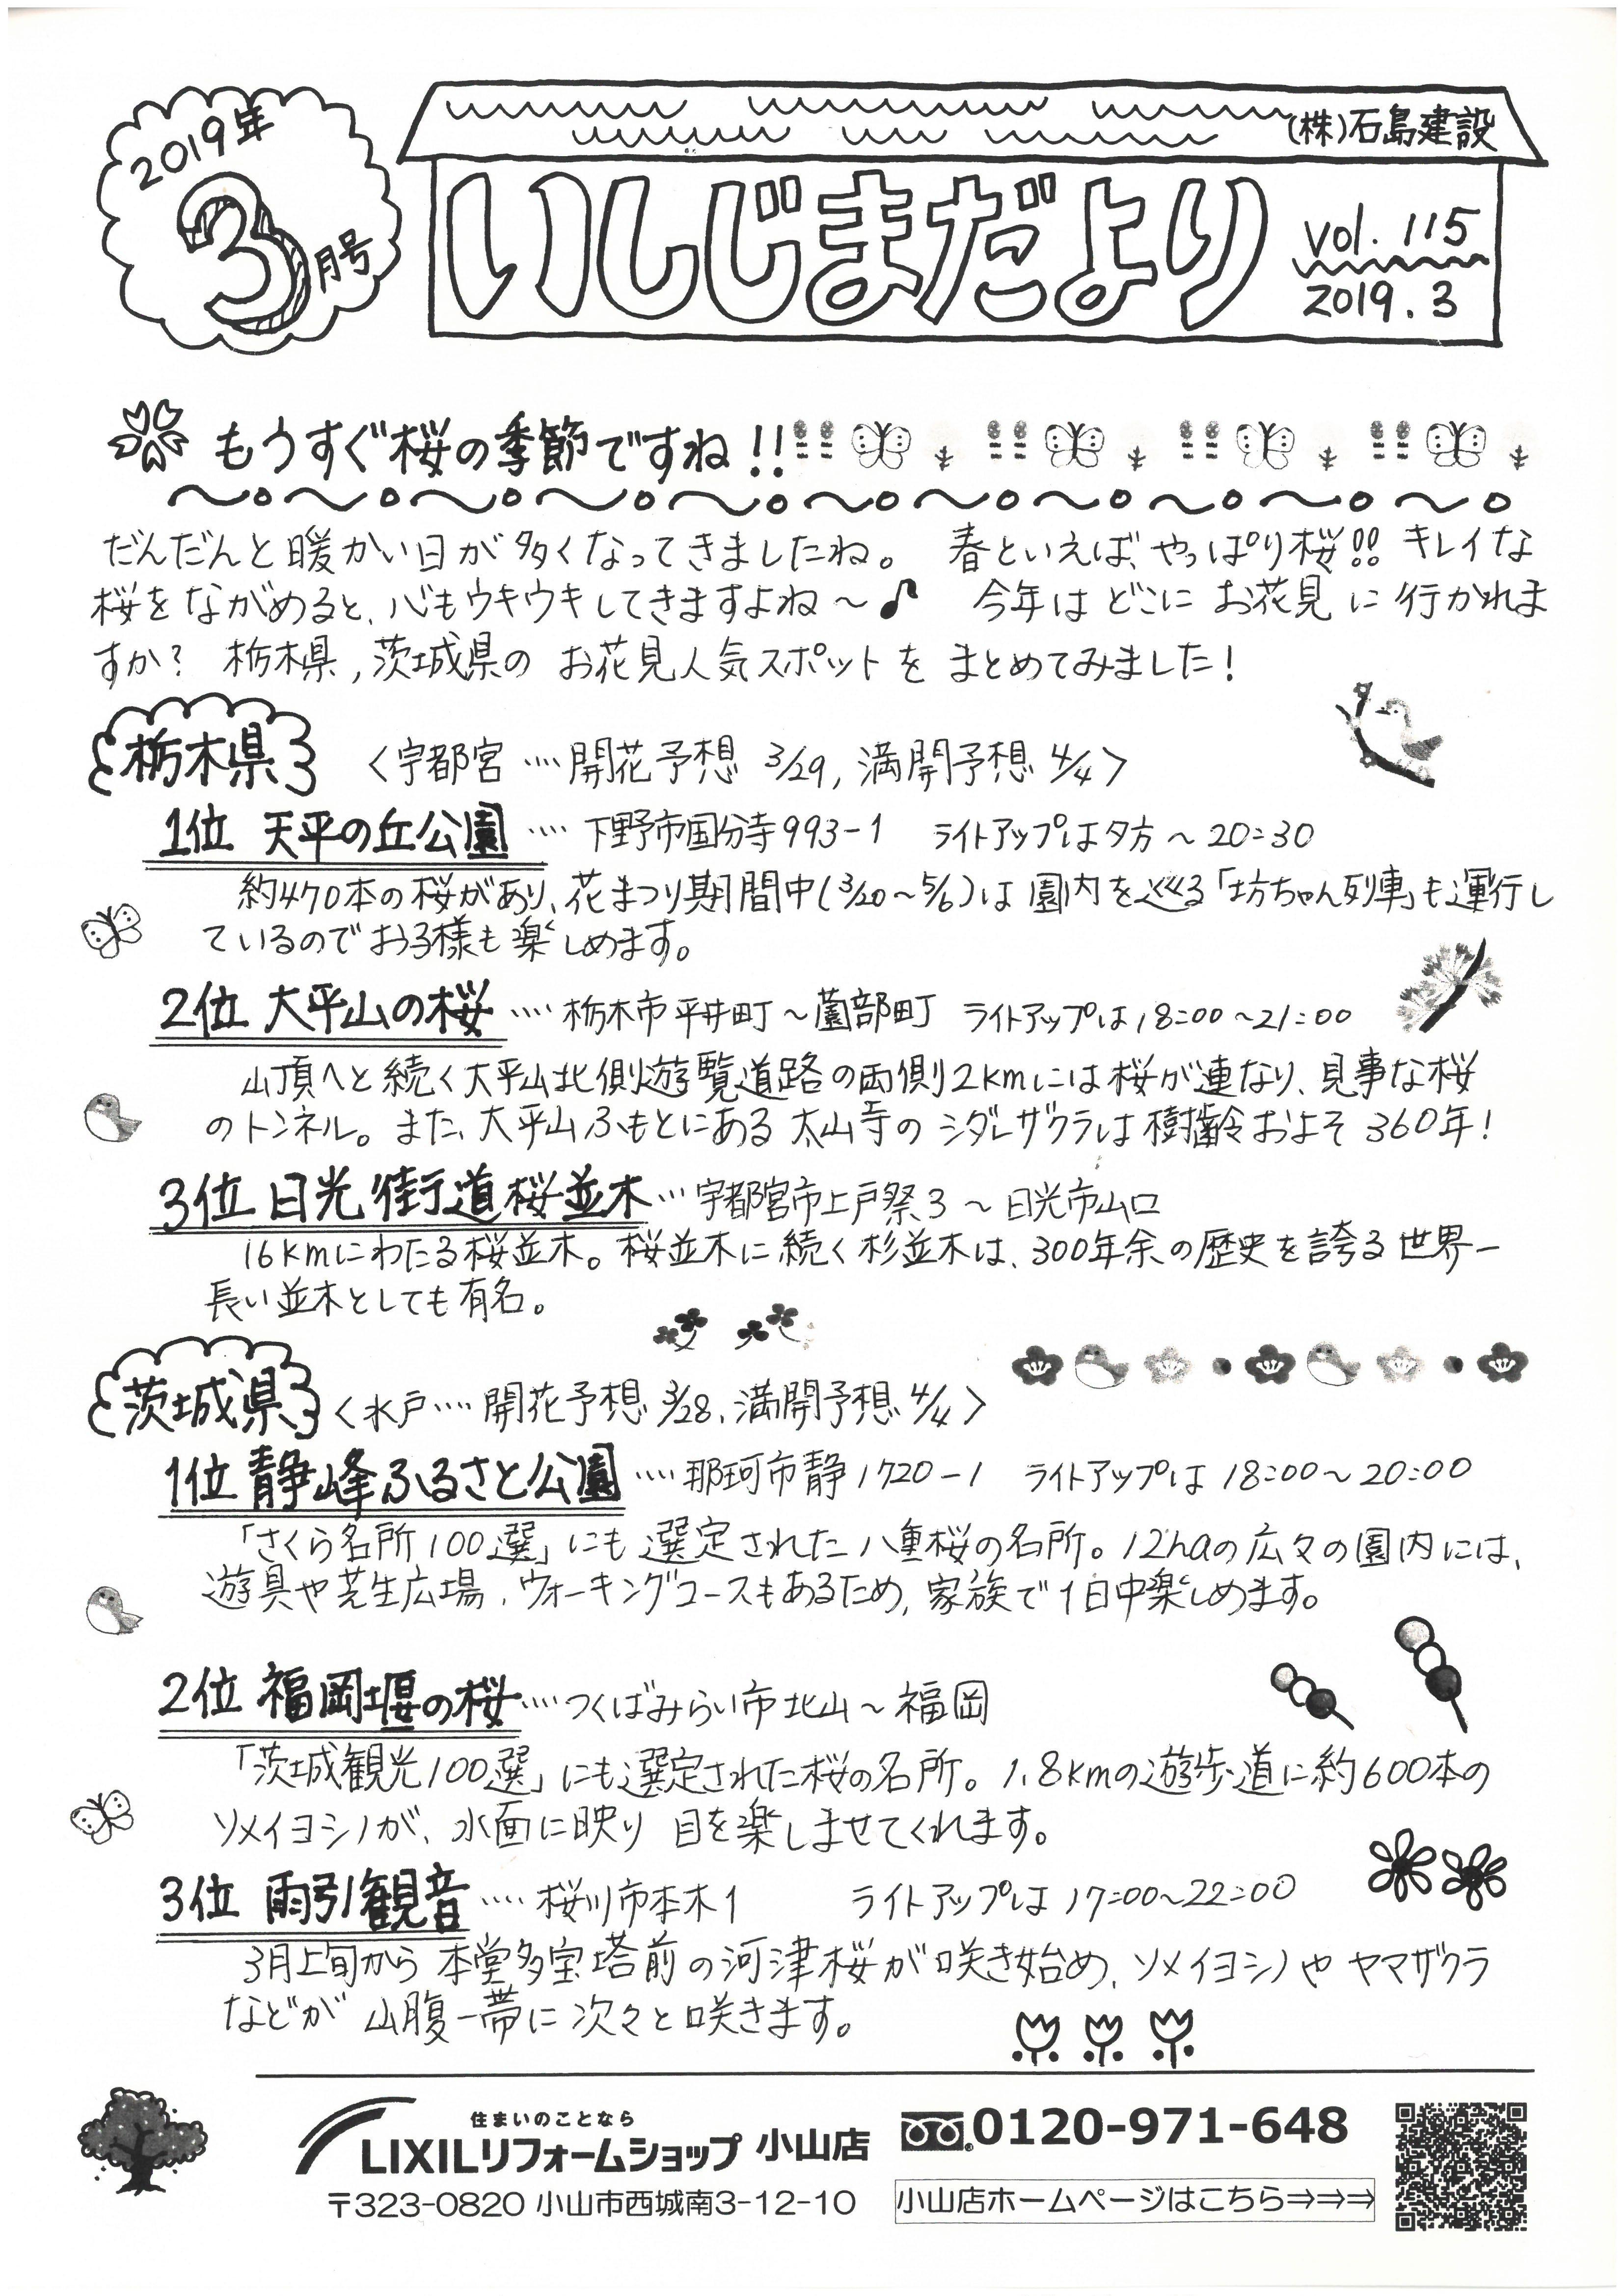 2019年
3月号
(株)石島建設
いしじまだより
vol. 115
2019. 3
もうすぐ桜の季節ですね!!
だんだんと暖かい日が多くなってきましたね。 春といえば、やっぱり桜!! キレイな
桜をながめると、心もウキウキしてきますよね〜♪ 今年はどこにお花見に行かれま
すか? 栃木県,茨城県のお花見人気スポットをまとめてみました!
栃木県 〈宇都宮…開花予想 3/29, 満開予想 4/4〉
1位 天平の丘公園 …. 下野市国分寺993-1 ライトアップは夕方〜20:30
約470本の桜があり、花まつり期間中(3/20〜5/6)は園内を巡る「坊ちゃん列車」も運行し
ているのでお子様も楽しめます。
2位 大平山の桜 …. 栃木市平井町〜薗部町 ライトアップは18:00〜21:00
山頂へと続く大平山北側遊覧道路の両側2kmには桜が連なり、見事な桜
のトンネル。また、大平山ふもとにある太山寺のシダレザクラは樹齢およそ360年!
3位 日光街道桜並木…宇都宮市上戸祭3 〜 日光市山口
16kmにわたる桜並木。桜並木に続く杉並木は、300年余の歴史を誇る世界一
長い並木としても有名。
茨城県 〈水戸…. 開花予想 3/28、満開予想 4/4〉
1位 静峰ふるさと公園 …. 那珂市静1720-1 ライトアップは 18:00〜20:00
「さくら名所100選」にも選定された八重桜の名所。12haの広々の園内には、
遊具や芝生広場、ウォーキングコースもあるため, 家族で1日中楽しめます。
2位 福岡堰の桜….つくばみらい市北山〜福岡
「茨城観光100選」にも選定された桜の名所。1.8kmの遊歩道に約600本の
ソメイヨシノが、水面に映り 目を楽しませてくれます。
3位 雨引観音 …. 桜川市本木1 ライトアップは 17:00〜22:00
3月上旬から本堂多宝塔前の河津桜が咲き始め、ソメイヨシノやヤマザクラ
などが山腹一帯に次々と咲きます。
住まいのことなら
LIXILリフォームショップ 小山店
0120-971-648
〒323-0820 小山市西城南3-12-10
小山店ホームページはこちら⇒⇒⇒